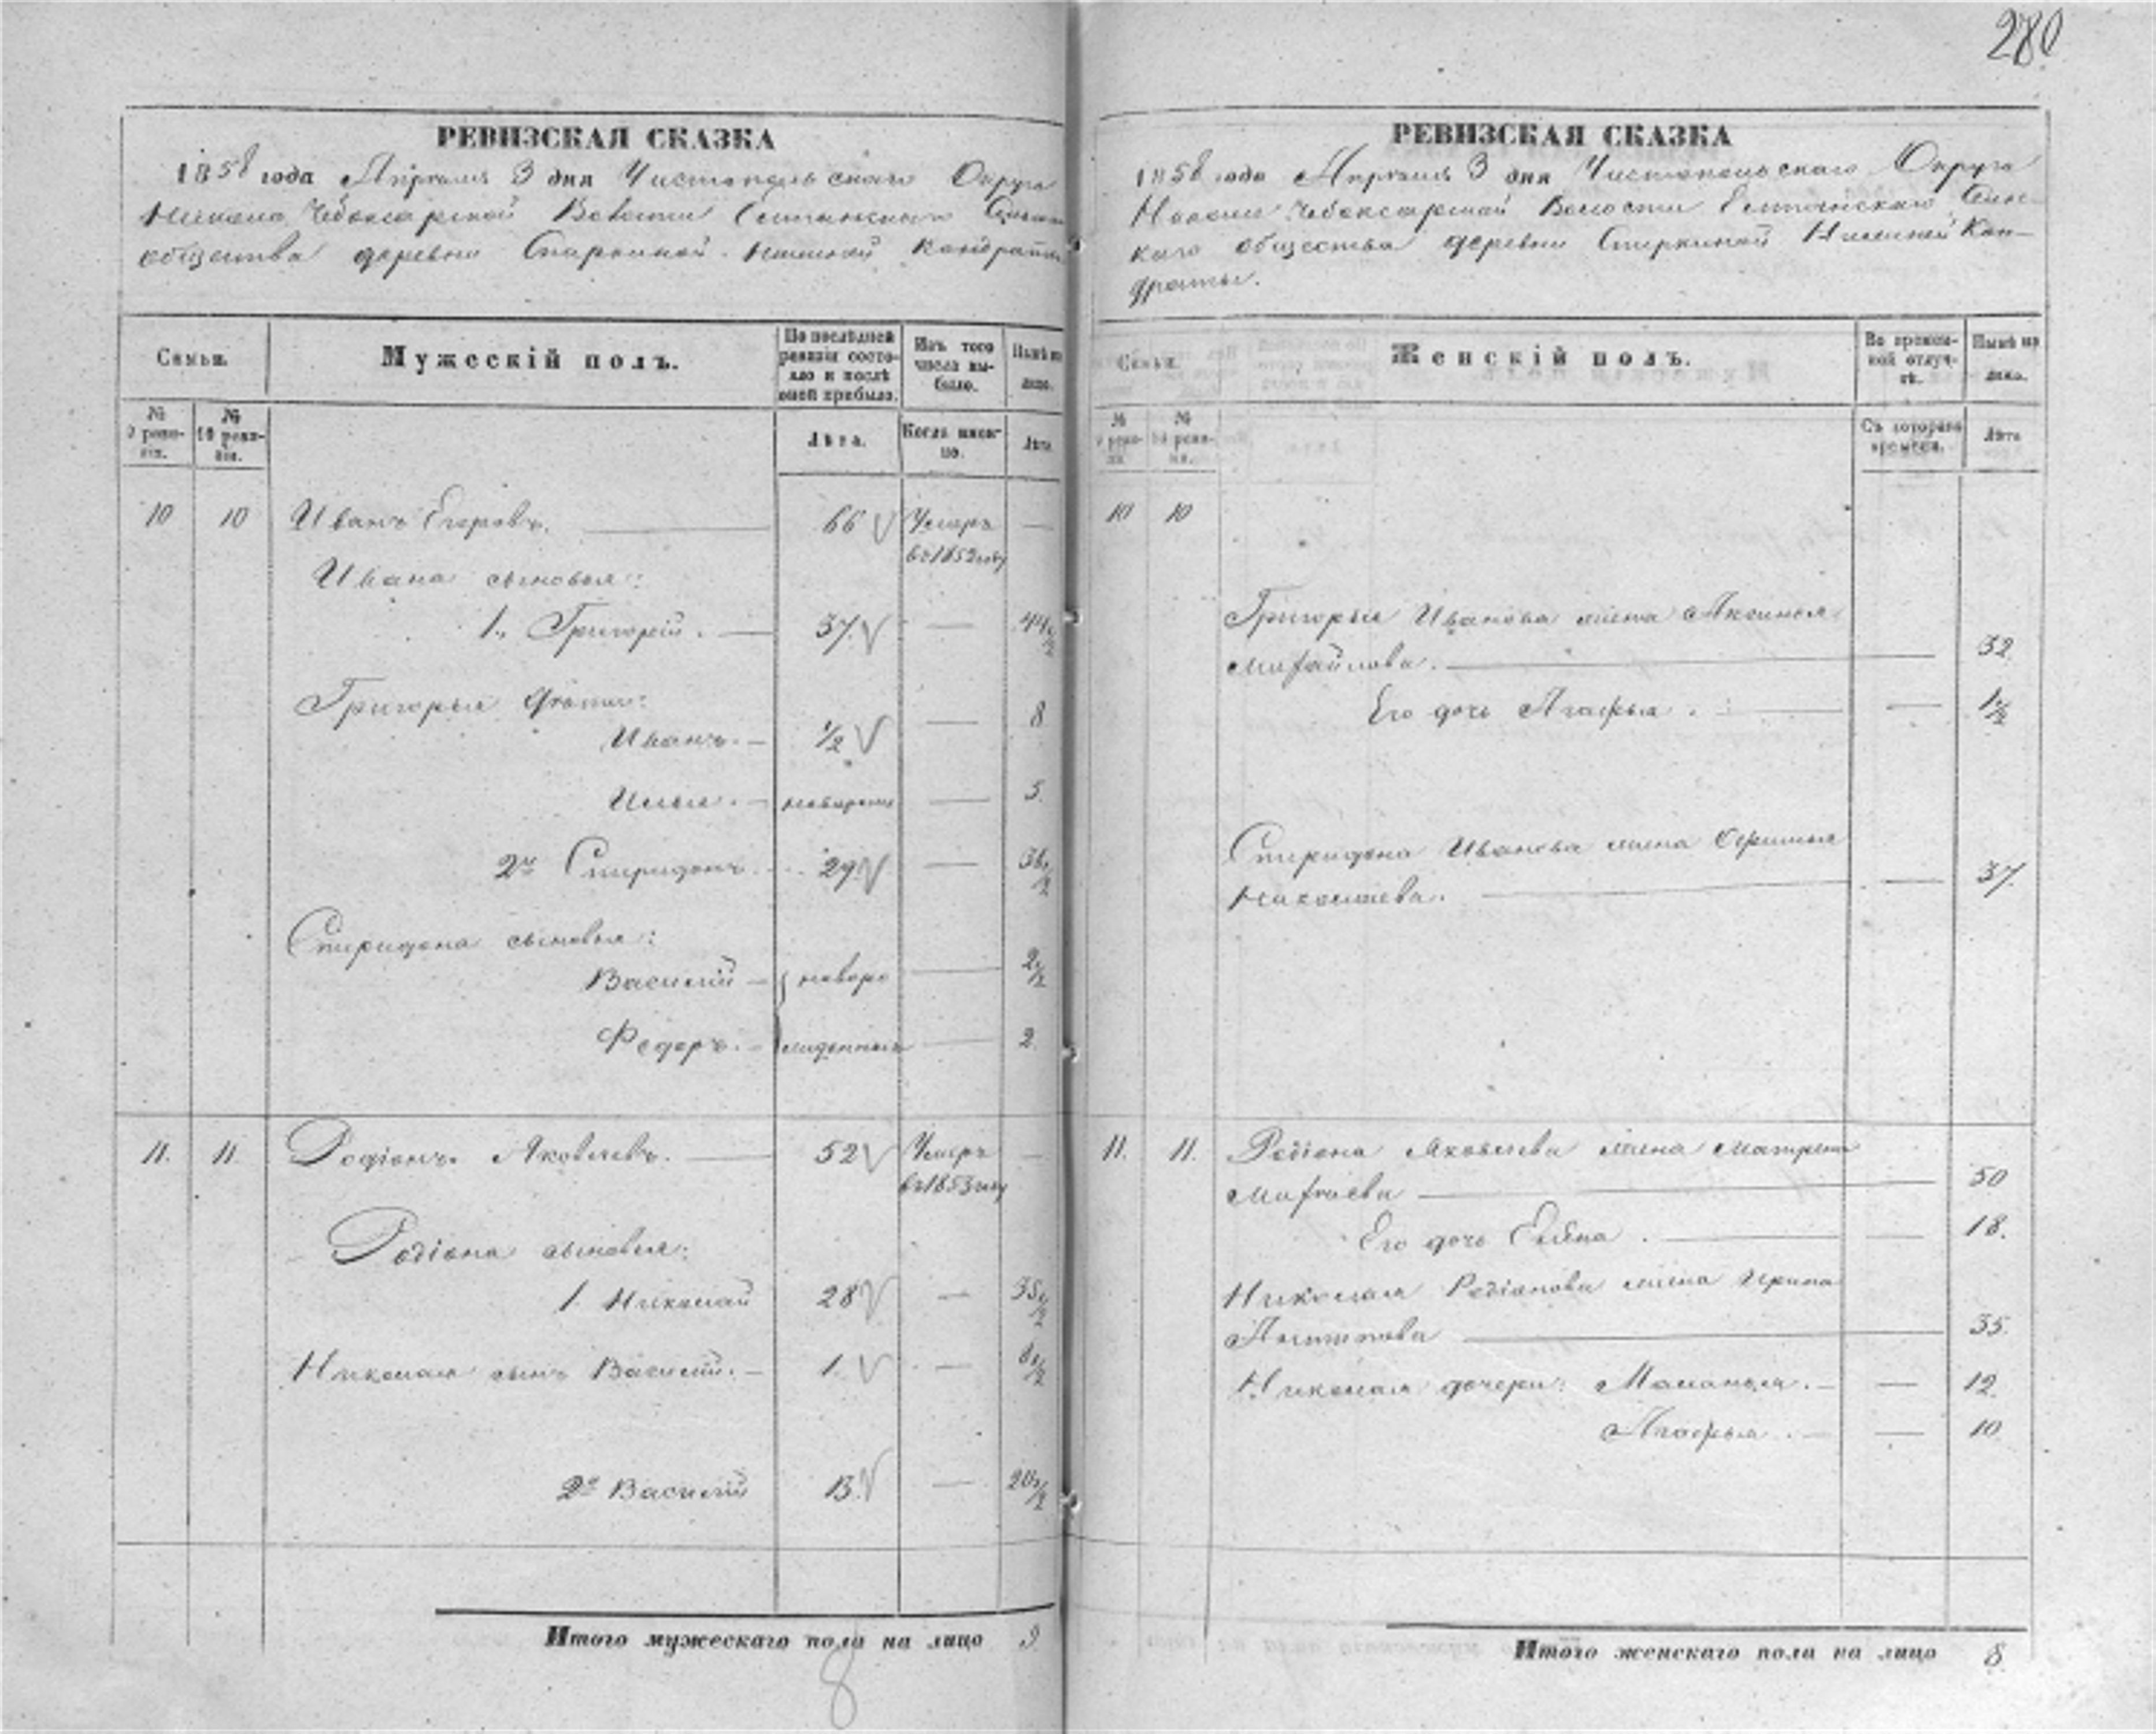 280
РЕВИЗСКАЯ СКАЗКА
1858 года Апреля 3 дня Чистопольскаго Округа
Чебоксарской Волости
общества деревни
Семьи.
Мужескій полъ.
По послѣдней ревизіи состояло и послѣ оной прибыло.
Изъ того числа выбыло.
Нынѣ на лицо.
№ 9 ревизіи.
№ 10 ревизіи.
Лѣта.
Когда именно.
Лѣта
10 10 Иванъ Егоровъ. 66 Умеръ —
въ 1852 году
Ивана сыновья:
1., Григорій. 37. — 44 1/2
Григорья дѣти:
Иванъ. — 1/2 — 8
Илья. — — 5.
2й Спиридонъ. 29. — 36 1/2
Спиридона сыновья:
Василій — новоро — 2 1/2
Федоръ. — жденныя — 2.
11. 11. Родіонъ Яковлевъ. 52 Умеръ —
въ 1853 году
Родіона сыновья:
1. Николай 28 — 35 1/2
Николая сынъ Василій. — 1. — 8 1/2
2й Василій 13. — 20 1/2
Итого мужескаго пола на лицо 9.
8
РЕВИЗСКАЯ СКАЗКА
1858 года Апреля 3 дня Чистопольскаго Округа
Чебоксарской Волости
каго общества деревни Кон-
драты.
Семьи.
Женскій полъ.
Во временной отлучкѣ.
Нынѣ на лицо.
№ 9 ревизіи.
№ 10 ревизіи.
Съ котораго времени.
Лѣта
10 10
Григорья Иванова жена Аксинья
Михайлова. 32.
Его дочь Агафья. — 1 1/2
Спиридона Иванова жена
Николаева. — 37.
11. 11. Родіона Яковлева жена Матрена
50
Его дочь — 18.
Николая Родіонова жена Ирина
35.
Николая дочери: Маланья. — — 12.
Агафья. — — 10
Итого женскаго пола на лицо 8.